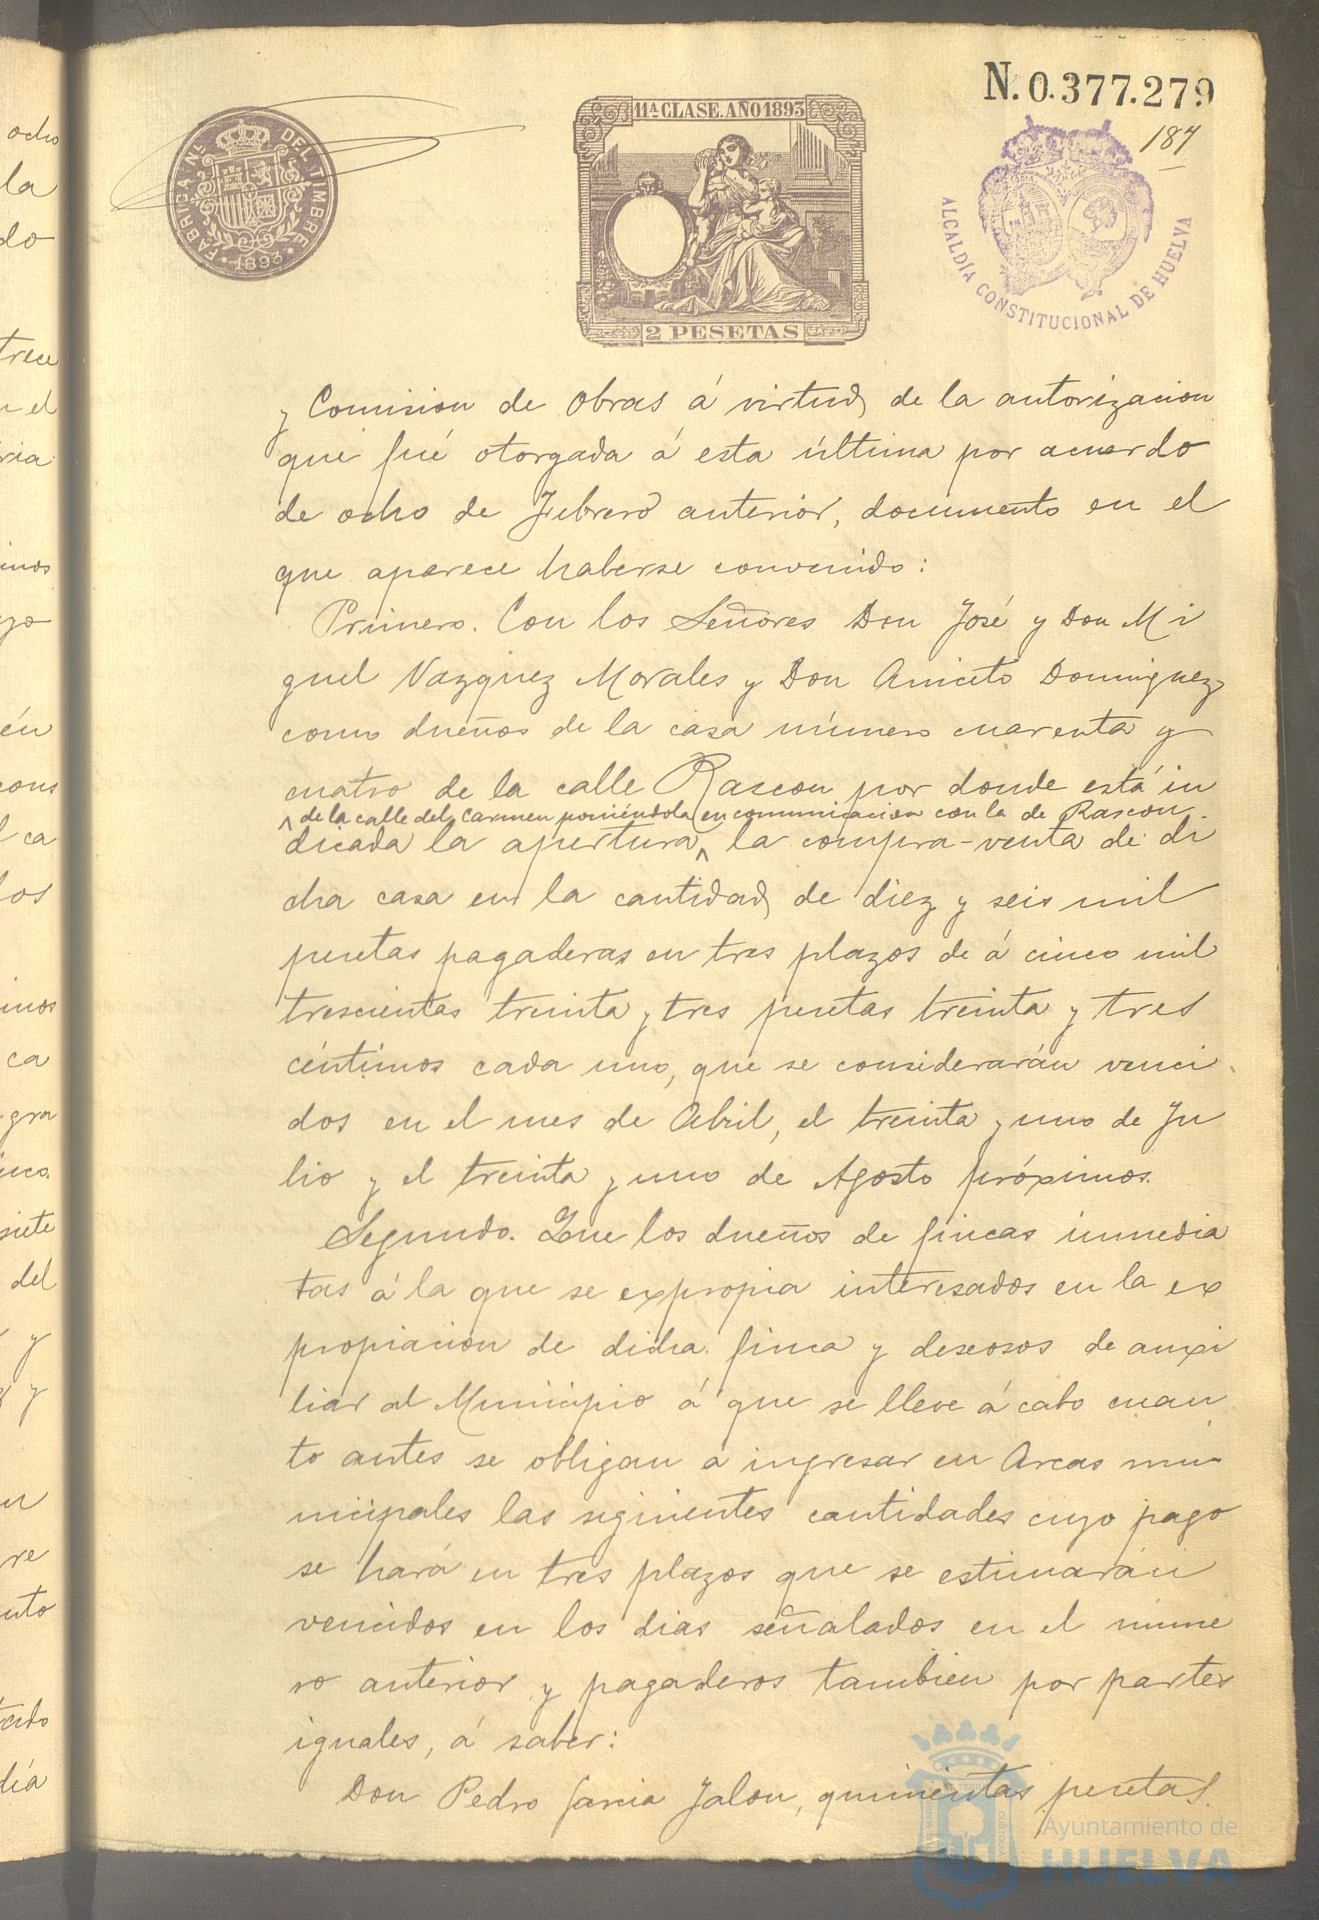 N. 0.377.279
187
11ª CLASE. AÑO 1893
FÁBRICA Nˡ DEL TIMBRE
1893
2 PESETAS
ALCALDÍA CONSTITUCIONAL DE HUELVA
y Comision de Obras á virtud de la autorizacion
que fué otorgada á esta última por acuerdo
de ocho de Febrero anterior, documento en el
que aparece haberse convenido:
Primero. Con los Señores Don José y Don Mi
guel Vazquez Morales y Don Aniceto Dominguez
como dueños de la casa número cuarenta y
cuatro de la calle Rascon por donde está in
^ de la calle del Carmen poniéndola en comunicacion con la de Rascon.
dicada la apertura ^ la compra-venta de di
cha casa en la cantidad de diez y seis mil
pesetas pagaderas en tres plazos de á cinco mil
trescientas treinta y tres pesetas treinta y tres
céntimos cada uno, que se considerarán venci
dos en el mes de Abril, el treinta y uno de Ju
lio y el treinta y uno de Agosto próximos.
Segundo. Que los dueños de fincas inmedia
tas á la que se expropia interesados en la ex
propiacion de dicha finca y deseosos de auxi
liar al Municipio á que se lleve á cabo cuan
to antes se obligan á ingresar en Arcas mu
nicipales las siguientes cantidades cuyo pago
se hará en tres plazos que se estimarán
vencidos en los dias señalados en el núme
ro anterior y pagaderos tambien por partes
iguales, á saber:
Don Pedro Garcia Jalon, quinientas pesetas.
Ayuntamiento de
HUELVA
ocho
la
do
trece
n el
ria
inos
yo
én
cons
l ca
los
inos
ca
gra
siete
del
y
y
re
nto
dia